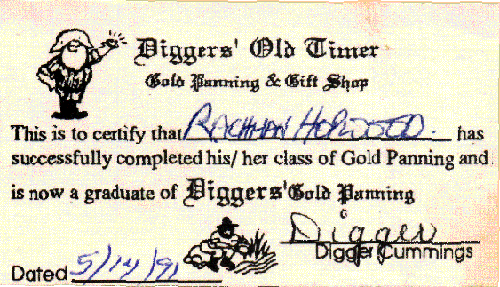 Diggers' Old Timer
Gold Panning & Gift Shop
This is to certify that has
successfully completed his/her class of Gold Panning and
is now a graduate of Diggers' Gold Panning
Digger
Digger Cummings
Dated 5/14/91